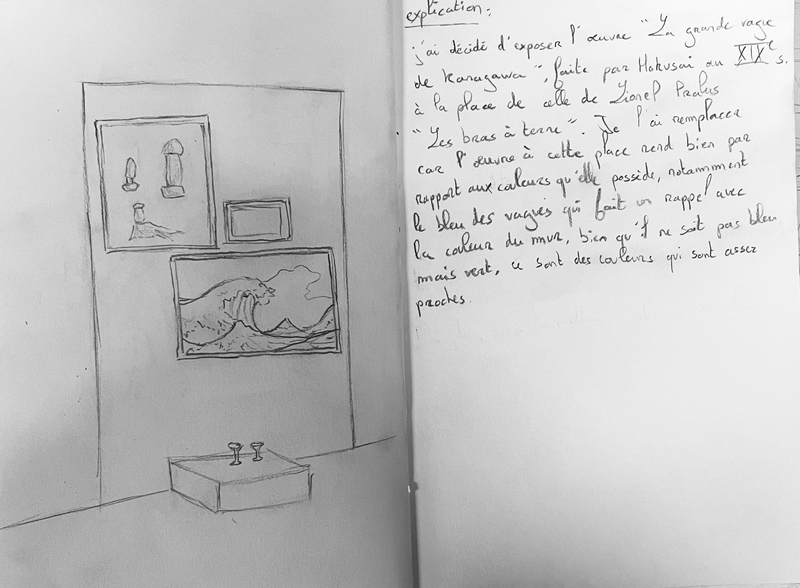 explication :
j'ai décidé d'exposer l'œuvre "La grande vague
de Kanagawa", faite par Hokusai au XIXe s.
à la place de celle de Lionel Pralus
"Les bras à terre". Je l'ai remplacer
car l'œuvre à cette place rend bien par
rapport aux couleurs qu'elle possède, notamment
le bleu des vagues qui fait un rappel avec
la couleur du mur, bien qu'il ne soit pas bleu
mais vert, ce sont des couleurs qui sont assez
proches.